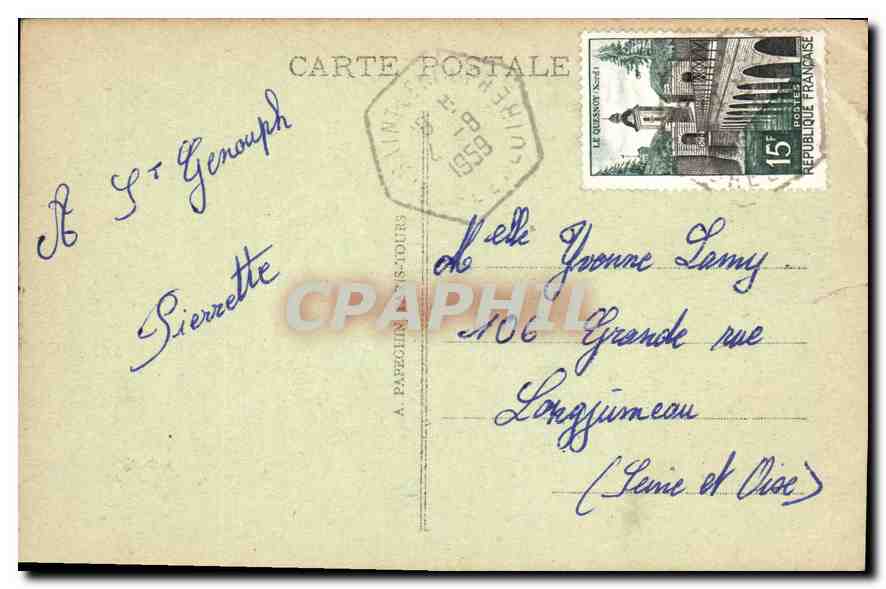 CARTE POSTALE
LE QUESNOY (Nord)
15F
POSTES
REPUBLIQUE FRANÇAISE
18 H
8 - 7
1959
A St Genouph
Pierrette
A. PAPEGHIN PARIS-TOURS
CPAPHIL
Melle Yvonne Lamy
106 Grande rue
Longjumeau
(Seine et Oise)